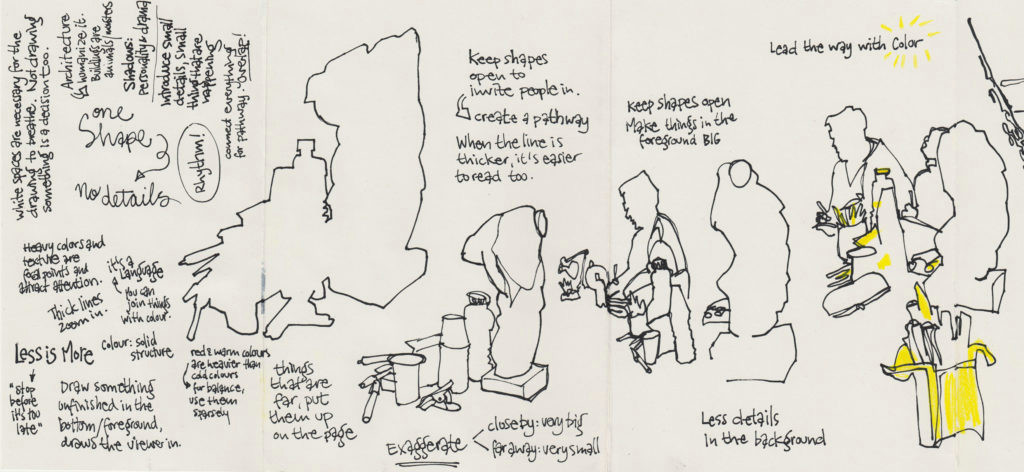 White spaces are necessary for the
drawing to breathe. Not drawing
something is a decision too.
Architecture
↳ humanize it.
Buildings are
animals/
Shadows:
personality & drama
Introduce small
details, small
things that are
happening
connect everything
for pathway. Overlap!
one
Shape
No details
Rhythm!
Heavy colors and
texture are
focal points and
attract attention.
Thick lines
zoom in.
it's a
Language
you can
join things
with colour.
Less is More
"stop
before
it's too
late"
colour: solid
structure
Draw something
unfinished in the
bottom/foreground,
draws the viewer in.
red & warm colours
are heavier than
cold colours
for balance,
use them
sparsely
things
that are
far, put
them up
on the page
Keep shapes
open to
invite people in.
↳ create a pathway
When the line is
thicker, it's easier
to read too.
Exaggerate
closeby: very big
far away: very small
Keep shapes open
Make things in the
foreground BIG
Less details
in the background
Lead the way with Color